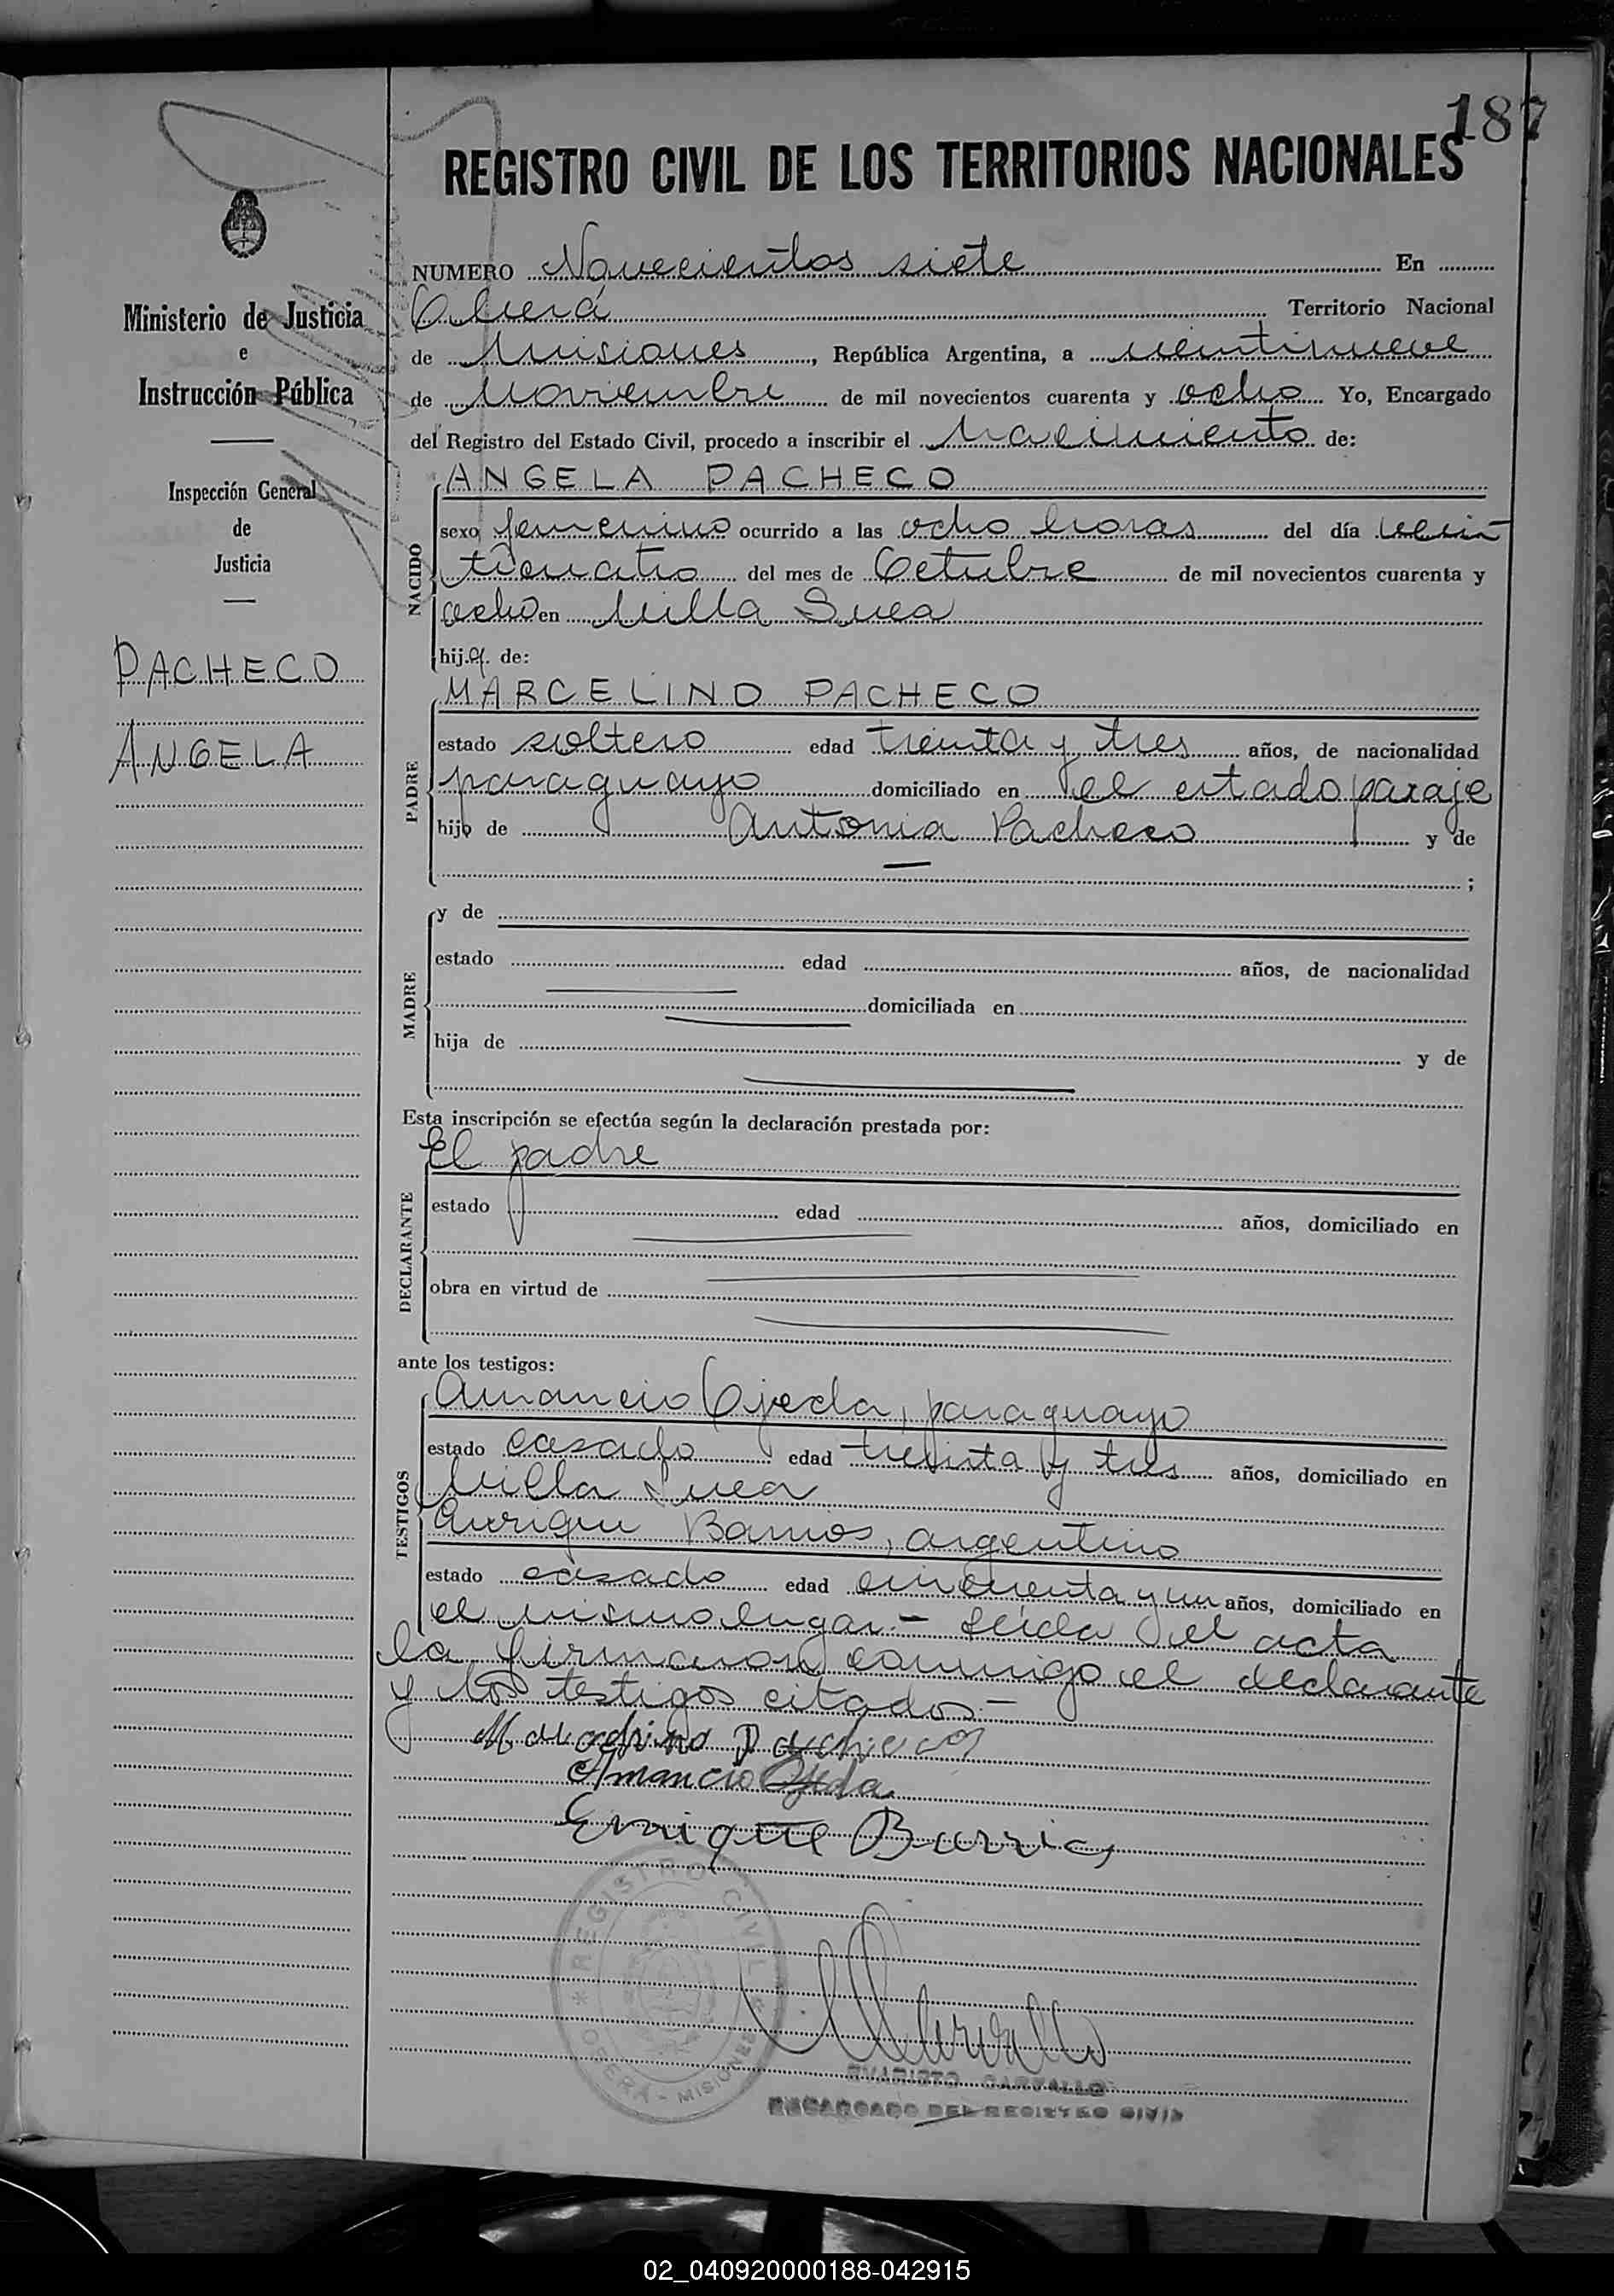 187
REGISTRO CIVIL DE LOS TERRITORIOS NACIONALES
NUMERO Novecientos siete En
Oberá Territorio Nacional
de Misiones, República Argentina, a veintinueve
de Noviembre de mil novecientos cuarenta y ocho Yo, Encargado
del Registro del Estado Civil, procedo a inscribir el Nacimiento de:
Ministerio de Justicia
e
Instrucción Pública
Inspección General
de
Justicia
PACHECO
ANGELA
NACIDO
ANGELA PACHECO
sexo femenino ocurrido a las ocho horas del día vein
ticuatro del mes de Octubre de mil novecientos cuarenta y
ocho en Villa Svea
hija de:
PADRE
MARCELINO PACHECO
estado soltero edad treinta y tres años, de nacionalidad
paraguayo domiciliado en el citado paraje
hijo de Antonia Pacheco y de
— ;
MADRE
y de
estado edad años, de nacionalidad
domiciliada en
hija de y de
Esta inscripción se efectúa según la declaración prestada por:
DECLARANTE
El padre
estado edad años, domiciliado en
obra en virtud de
ante los testigos:
TESTIGOS
Amancio Ojeda, paraguayo
estado casado edad treinta y tres años, domiciliado en
Villa Svea
Enrique Barrios, argentino
estado casado edad cincuenta y un años, domiciliado en
el mismo lugar.- Leída el acta
la firmaron conmigo el declarante
y los testigos citados.-
Pacheco
Amancio Ojeda
Enrique Barrios
REGISTRO CIVIL
OBERÁ - MISIONES
EVARISTO CARVALLO
ENCARGADO DEL REGISTRO CIVIL
02_040920000188-042915